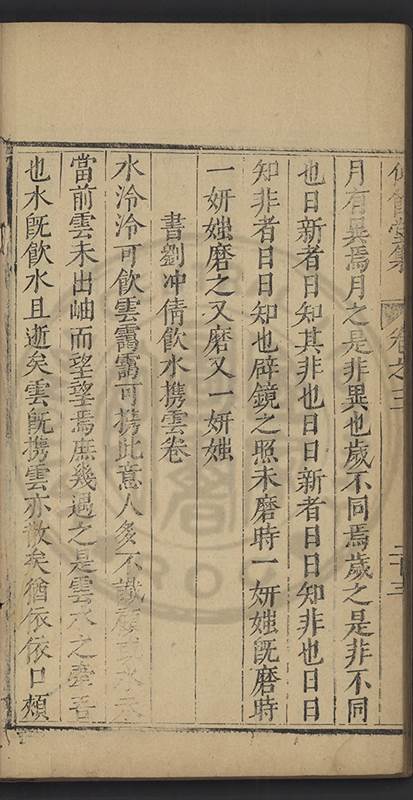 卷之三
月有異焉月之是非異也歲不同焉歲之是非不同
也日新者日日知其非也日日新者日日知非也日日
知非者日日知也辟鏡之照未磨時一妍媸旣磨時
一妍媸磨之又磨又一妍媸
書劉冲倩飲水携雲卷
水泠泠可飲雲靄靄可携此意人多不識
當前雲未出岫而望望焉庶幾遇之是雲水之
也水旣飲水且逝矣雲旣携雲亦散矣猶依依口頰